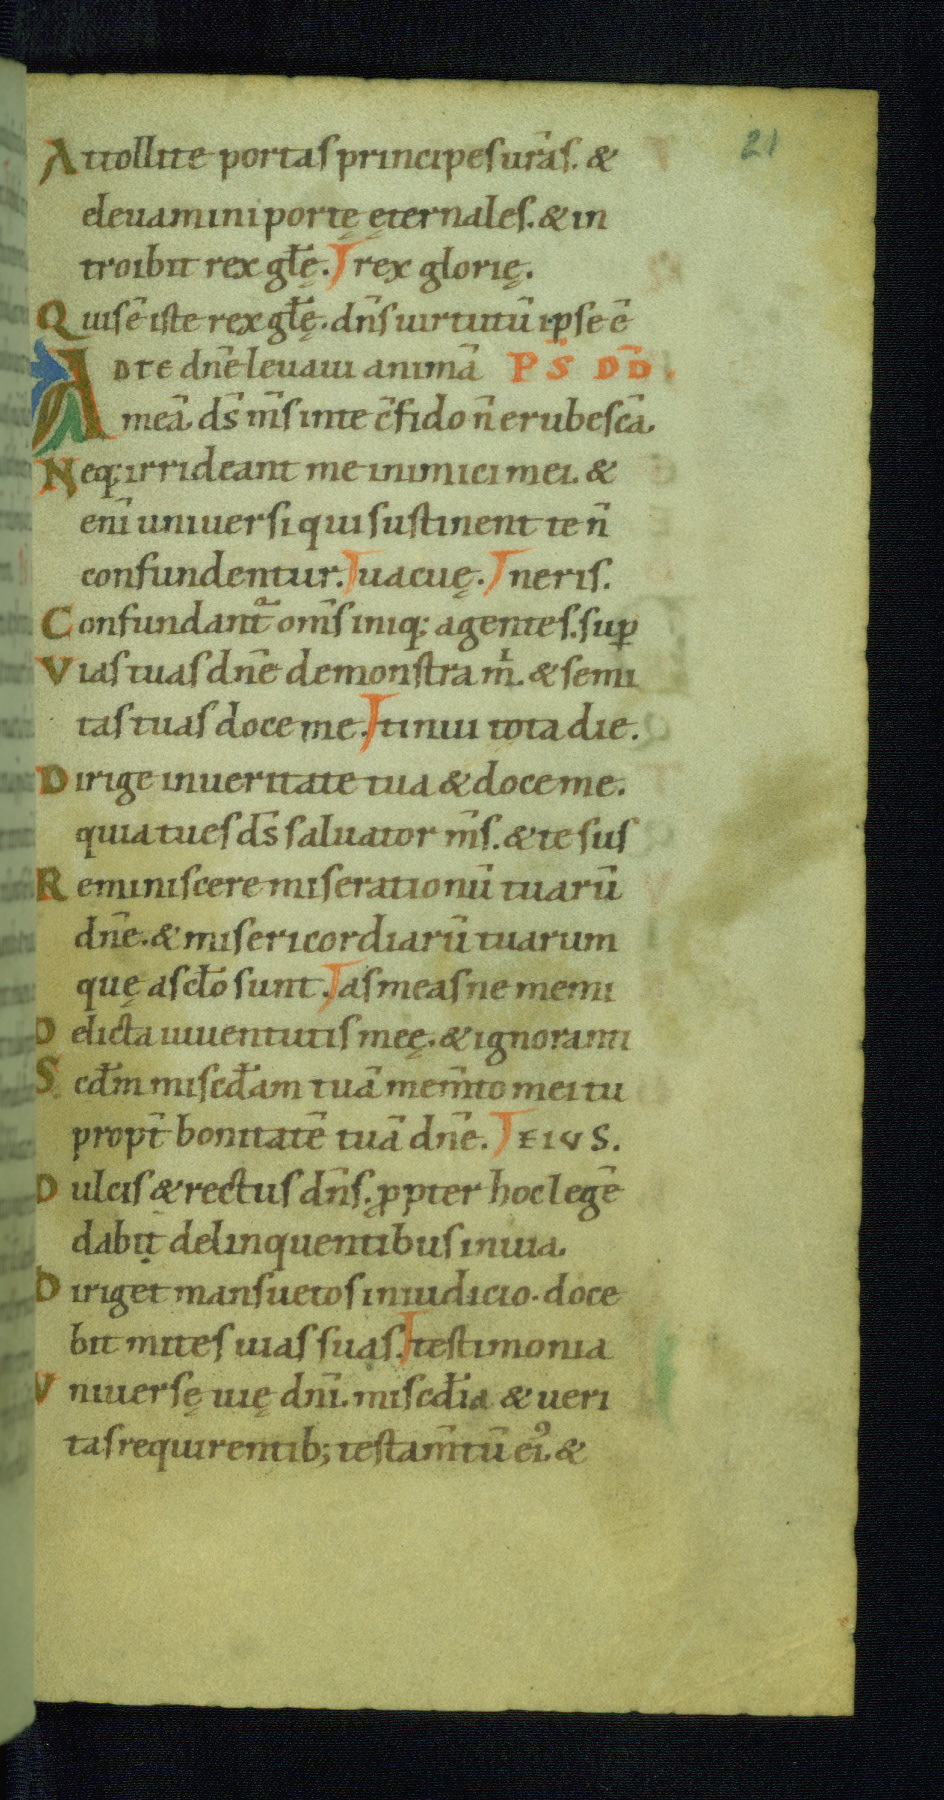 21
Attollite portas principes ur̄as. &
eleuamini portę ęternales. & in
troibit rex gl̄ę. rex glorię.
Quis ē iste rex gl̄ę. dn̄s uirtutū ipse ē
AD TE dn̄e leuaui animā PS̄ DD̄.
meā. ds̄ m̄s in te c̄fido n̄ erubescā.
Neq; irrideant me inimici mei. &
eni̅ uniuersi qui sustinent te n̄
confundentur. uacuę. neris.
Confundant᷑ om̄s iniq; agentes. suꝑ
Vias tuas dn̄e demonstra m̍. & semi
tas tuas doce me. tinui tota die.
Dirige in ueritate tua & doce me.
quia tu es ds̄ saluator m̄s. & te sus
Reminiscere miserationū tuarū
dn̄e. & misericordiarū tuarum
quę a scło sunt. as meas ne memi
Delicta iuuentutis meę. & ignoranti
Scdm̄ miscđam tuā mem̄to mei tu
propt̄ bonitatē tuā dn̄e. EIUS.
Dulcis & rectus dn̄s. ꝓpter hoc legē
dabit delinquentibus in uia.
Diriget mansuetos in iudicio. doce
bit mites uias suas. testimonia
Vniuersę uię dn̄i. miscđia & ueri
tas requirentib; testam̄tū ei᾿. &